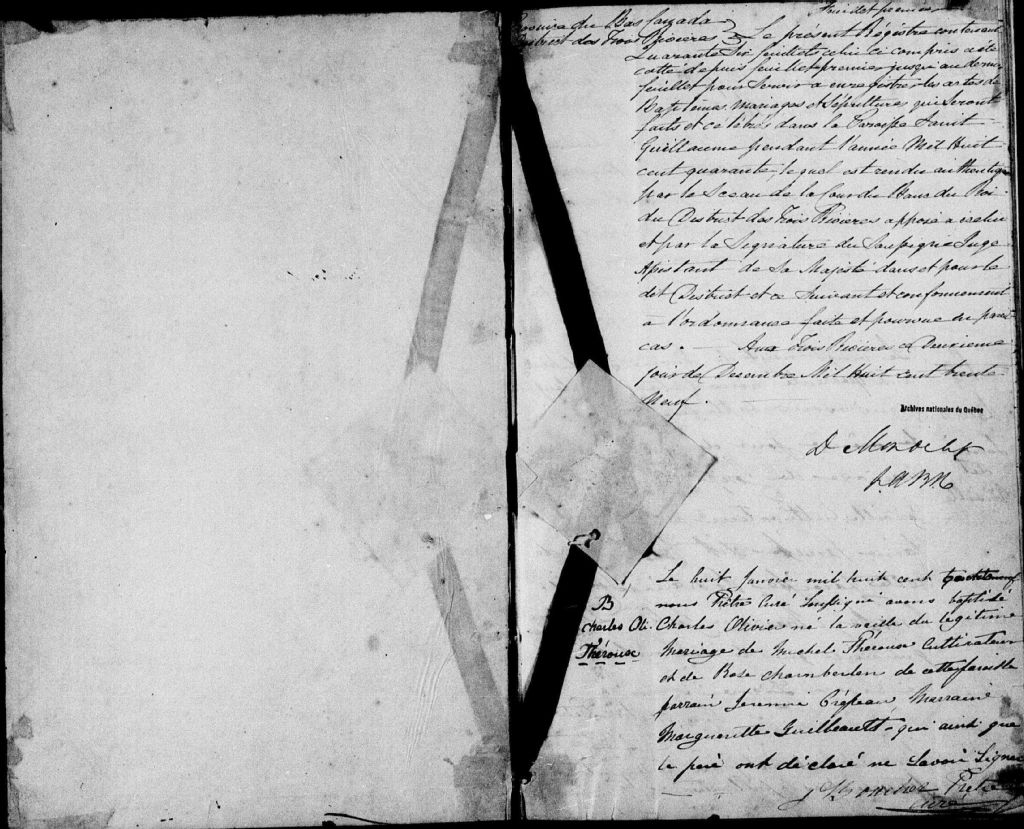 Feuillet premier
Province du Bas Canada
District des Trois Rivieres Le présent Régistre contenant
Quarante Six feuillets celui ci compris a été
cotté depuis feuillet premier jusqu'au dernier
feuillet pour Servir a enregistrer les actes de
Baptêmes mariages et Sépultures qui Seront
faits et célébrés dans la Paroisse Saint
Guillaume pendant l'année Mil Huit
cent quarante, lequel est rendu authentique
par le Sceau de la Cour du Banc du Roi
du District des Trois Rivieres apposé a icelui
et par la Signature du Soussigné Juge
Assistant de Sa Majesté dans et pour le
dit District et ce Suivant et conformement
a l'ordonnance faite et pourvue en pareil
cas. Aux Trois Rivieres ce Deuxieme
jour de Decembre Mil Huit cent trente
Neuf.
Archives nationales du Québec
D Mondelet
J.A.B.R.
Le huit Janvier mil huit cent
nous Prêtre Curé Soussigné avons baptisé
B
Charles Oli.
Thérouse
Charles Olivier né la veille du légitime
Mariage de Michel Thérouse Cultivateur
et de Rose Chamberlan de cette paroisse
parrain Jeremie Crépeau, Marraine
Margueritte Guilleault qui ainsi que
le peré ont déclaré ne Savoir Signer
Prêtre
Curé